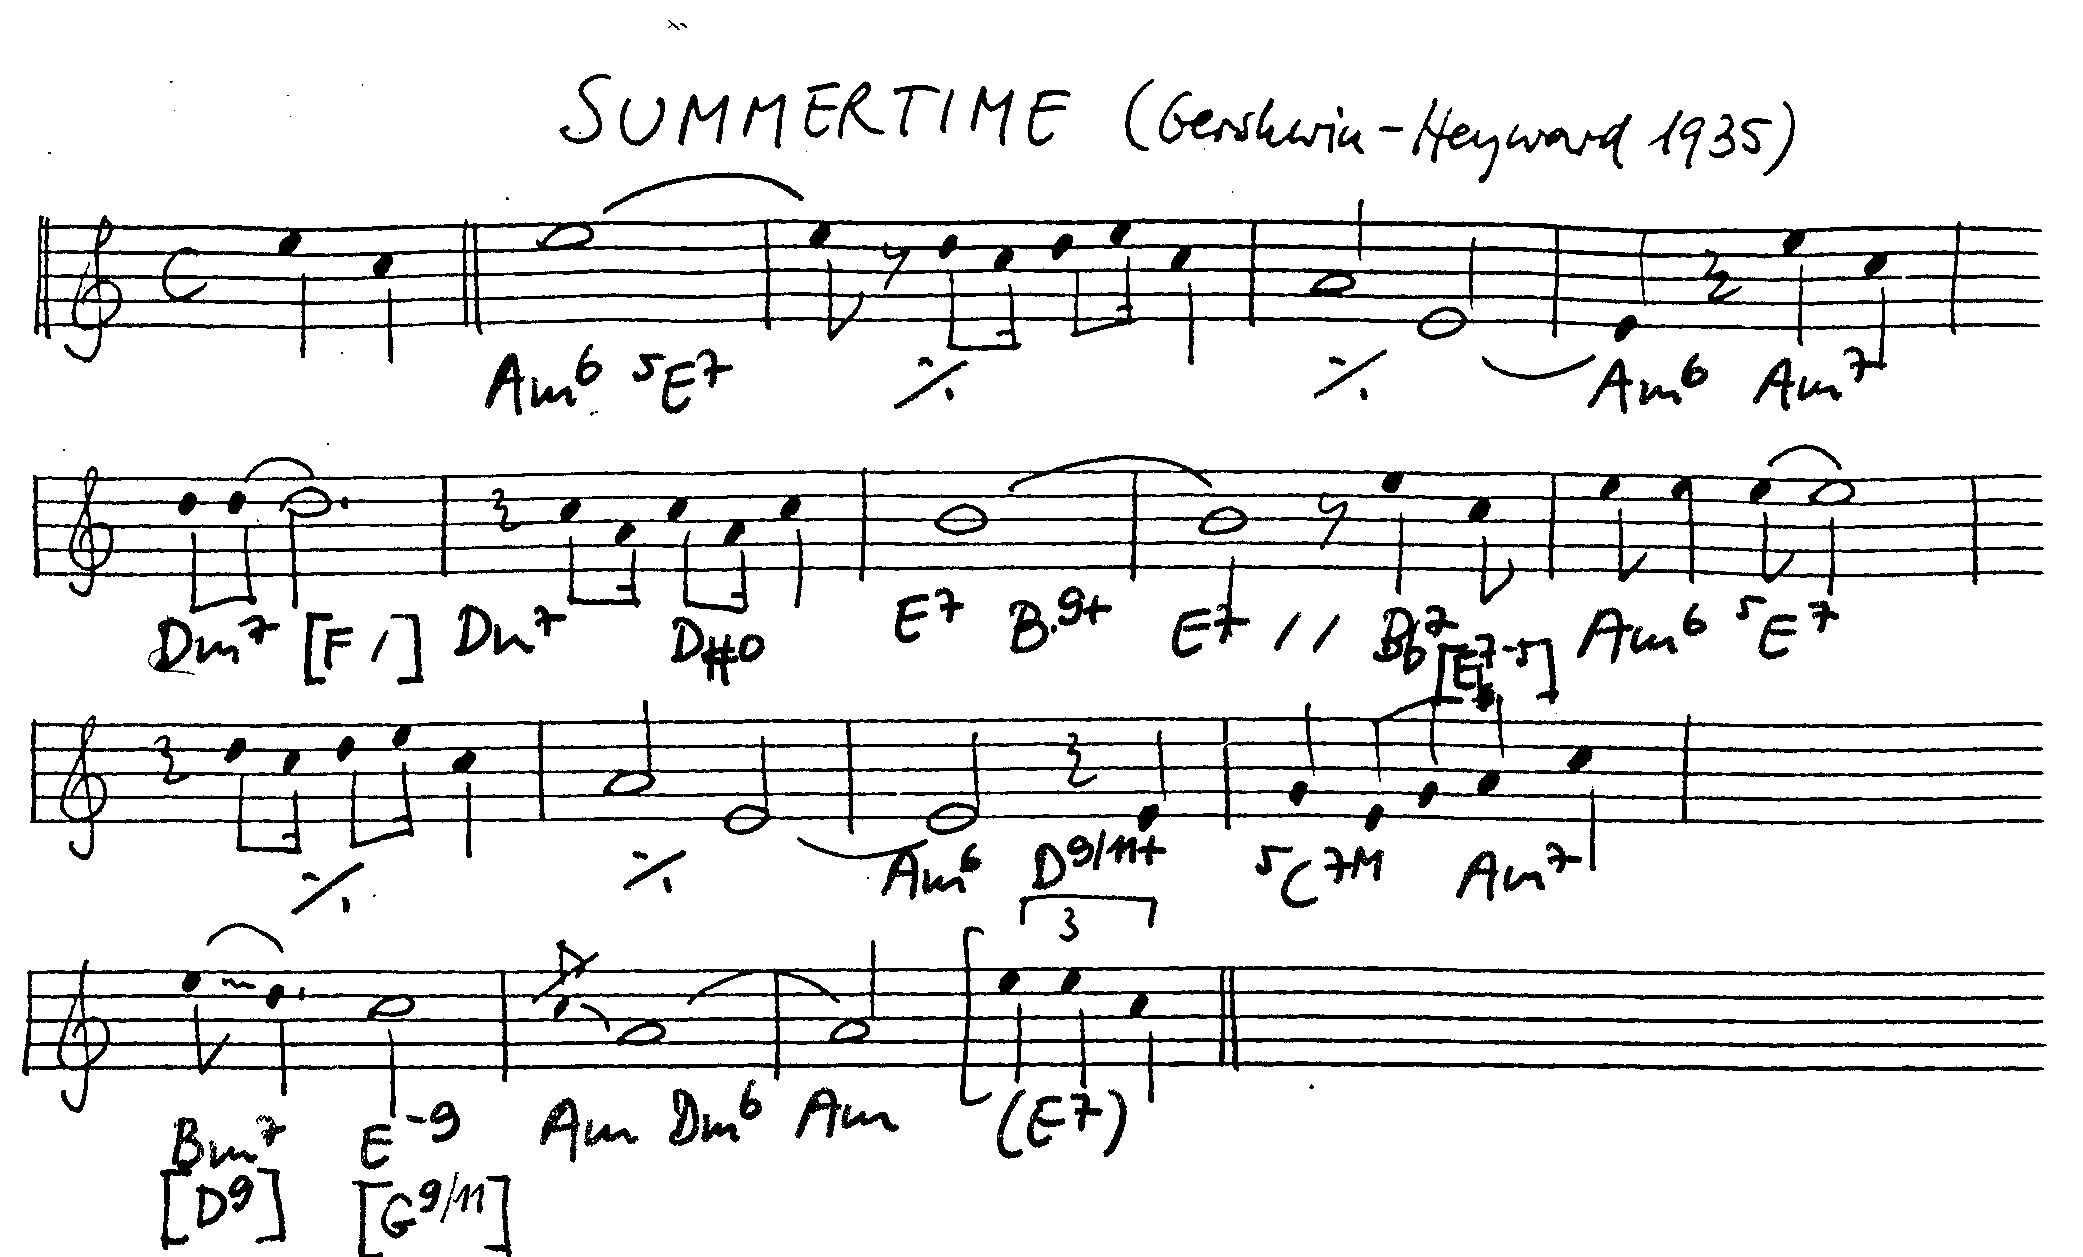 SUMMERTIME (Gershwin-Heyward 1935)
Am6 5E7 ٪ ٪ Am6 Am7
Dm7 [F /] Dm7 D#o E7 B.9+ E7 // Bb7 [E7-5] Am6 5E7
٪ ٪ Am6 D9/11+ 5C7M Am7
3
Bm7 E-9 Am Dm6 Am (E7)
[D9] [G9/11]